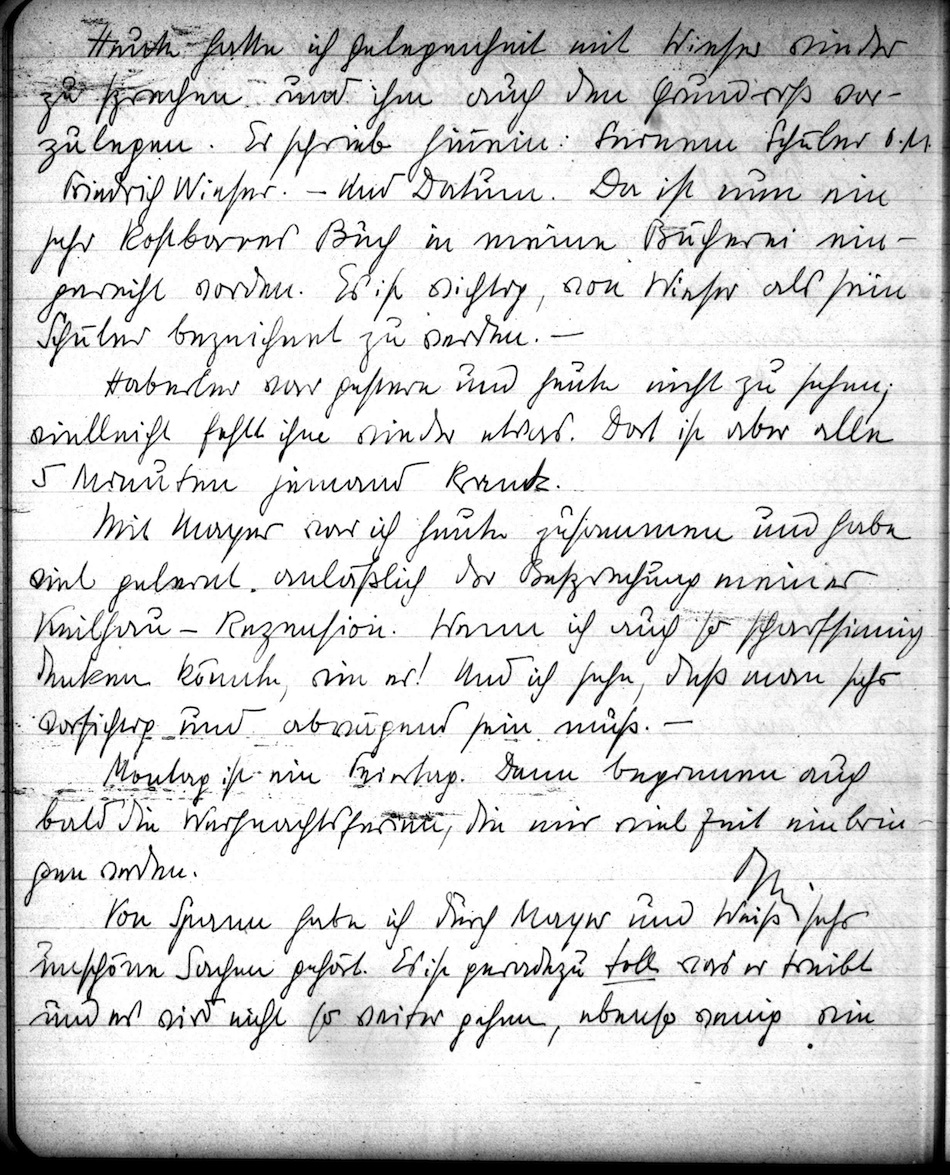 Heute hatte ich gelegenheit mit Wieser wieder
zu sprechen und ihm auch den Grundriß vor-
zulegen. Er schrieb hinein: Seinem Schüler O. M.
Friedrich Wieser. – Und Datum. Da ist nun ein
sehr kostbares Buch in meine Bücherei ein-
gereiht worden. Es ist wichtig, von Wieser als sein
Schüler bezeichnet zu werden. –
Haberler war gestern und heute nicht zu sehen;
vielleicht fehlt ihm wieder etwas. Dort ist aber alle
5 Minuten jemand krank.
Mit Mayer war ich heute zusammen und habe
viel gelernt anläßlich der Besprechung meiner
Keilhau – Rezension. Wenn ich auch so scharfsinnig
denken könnte, wie er! Und ich sehe, daß man sehr
vorsichtig und abwägend sein muß. –
Montag ist ein Feiertag. Dann beginnen auch
bald die Weihnachtsferien, die mir viel Zeit einbrin-
gen werden.
Von Spann habe ich durch Mayer und Weiß sehr
unschöne Sachen gehört. Es ist geradezu toll was er treibt
und es wird nicht so weiter gehen, ebenso wenig wie